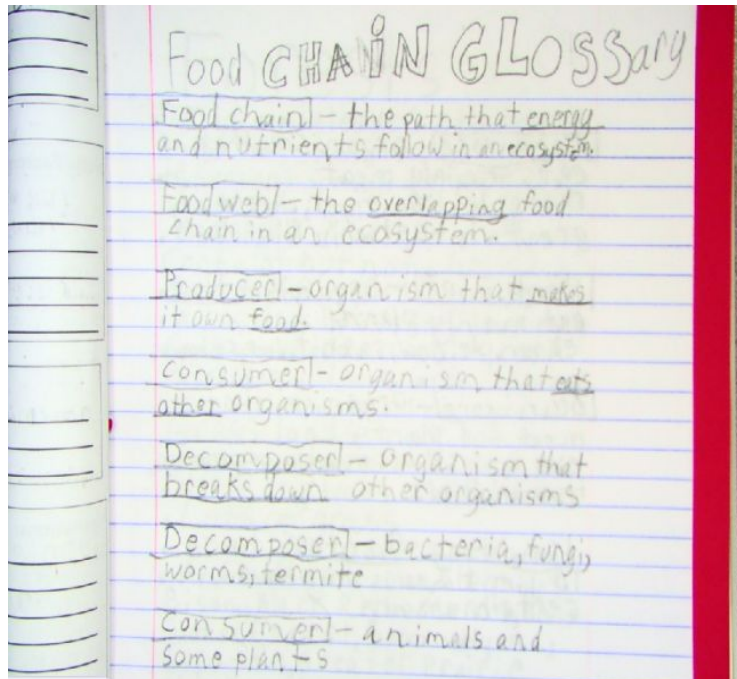 Food CHAiN GLOSSary
Food chain - the path that energy
and nutrients follow in an ecosystem.
Food web - the overlapping food
chain in an ecosystem.
Producer - organism that makes
it own food.
Consumer - organism that eats
other organisms.
Decomposer - organism that
breaks down other organisms
Decomposer - bacteria, fungi,
worms, termite
Consumer - animals and
some plants